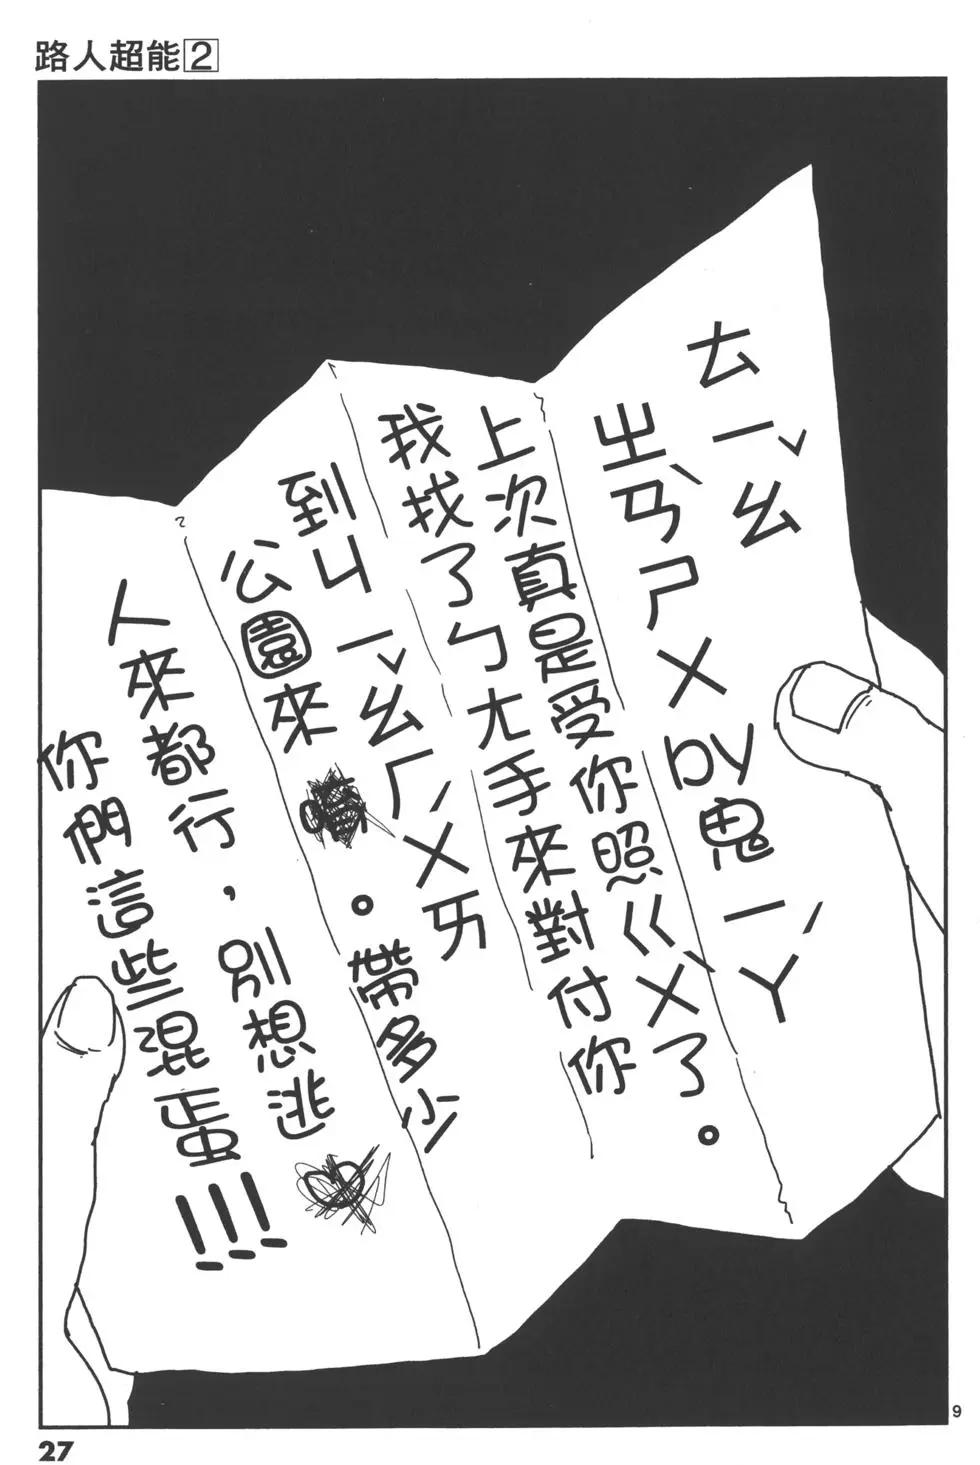 路人超能2
ㄊㄧㄠˇ
ㄓㄢˋㄕㄨby鬼ㄧㄚˊ
上次真是受你照ㄍㄨˋ了。
我找了ㄅㄤ手來對付你
到ㄐㄧㄠˇㄏㄨㄞˊ
公園來。帶多少
人來都行，別想逃♡
你們這些混蛋!!!
9
27